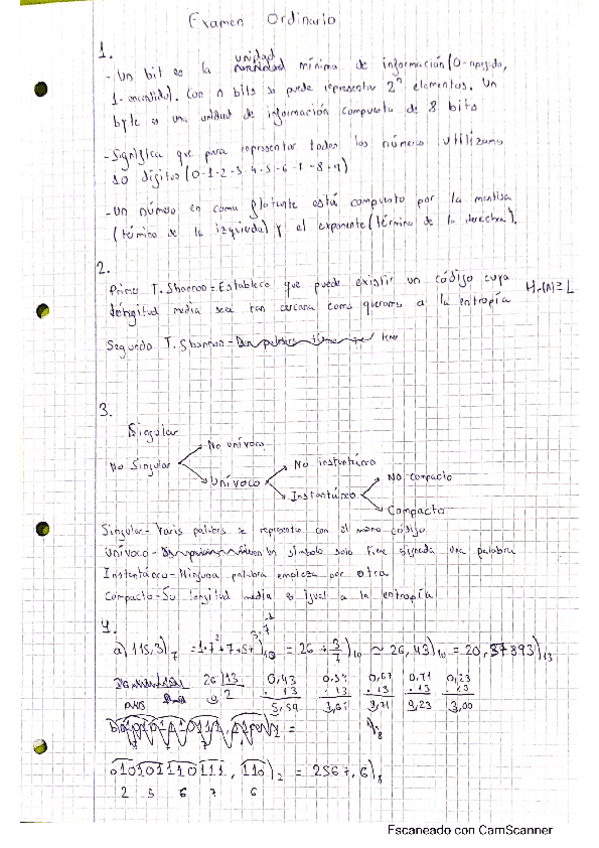 Examen Ordinario
1.
unidad
- Un bit es la mínima de información (0-apagado,
1-encendido). Con n bits se puede representar 2^n elementos. Un
byte es una unidad de información compuesta de 8 bits
- Significa que para representar todos los números utilizamos
10 dígitos (0-1-2-3-4-5-6-7-8-9)
- Un número en coma flotante está compuesto por la mantisa
(término de la izquierda) y el exponente (término de la derecha).
2.
Primer T. Shannon = Establece que puede existir un código cuya
longitud media sea tan cercana como queramos a la entropía
Segundo T. Shannon =
3.
Singular
No Singular
No unívoco
Unívoco
No instantáneo
Instantáneo
No compacto
Compacto
Singular - Varias palabras se representan con el mismo código
Unívoco - Un símbolo solo tiene signada una palabra
Instantáneo - Ninguna palabra empieza por otra
Compacto - Su longitud media es igual a la entropía
4.
a) 115,3)7 = 1·7²+7+5+3·7⁻¹)10 = 26 + 3/7)10 ≈ 26,43)10 = 20,
26 13 0,43 0,67 0,71 0,23
0 2 .13 .13 .13 .13 .13
5,59 9,23 3,00
010101110111, 110)2 = 2567,6)8
2 5 6 7 6
Escaneado con CamScanner